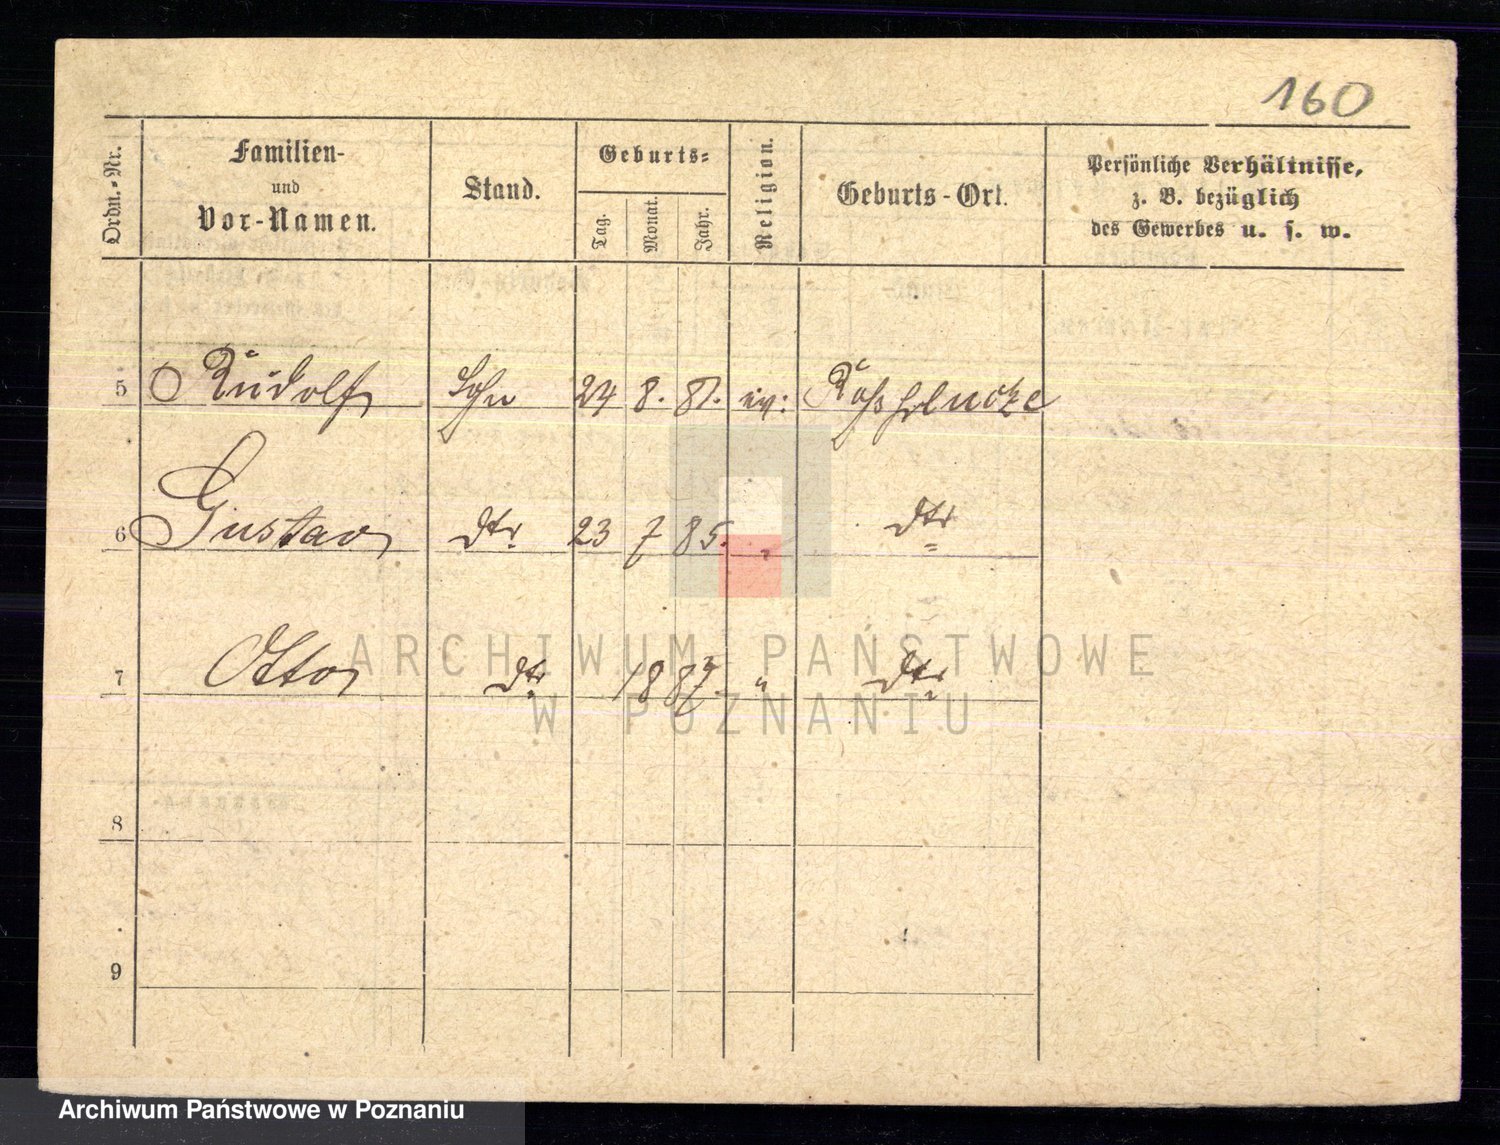 160
Ordn.-Nr.
Familien-
und
Vor-Namen.
Stand.
Geburts-
Tag.
Monat.
Jahr.
Religion.
Geburts-Ort.
Persönliche Verhältnisse,
z. B. bezüglich
des Gewerbes u. s. w.
5 Rudolf Sohn 24 8. 81. ev:
6 Gustav dto 23 7 85. " dto
7 Otto dto 1887. " dto
8
9
ARCHIWUM PAŃSTWOWE
W POZNANIU
Archiwum Państwowe w Poznaniu